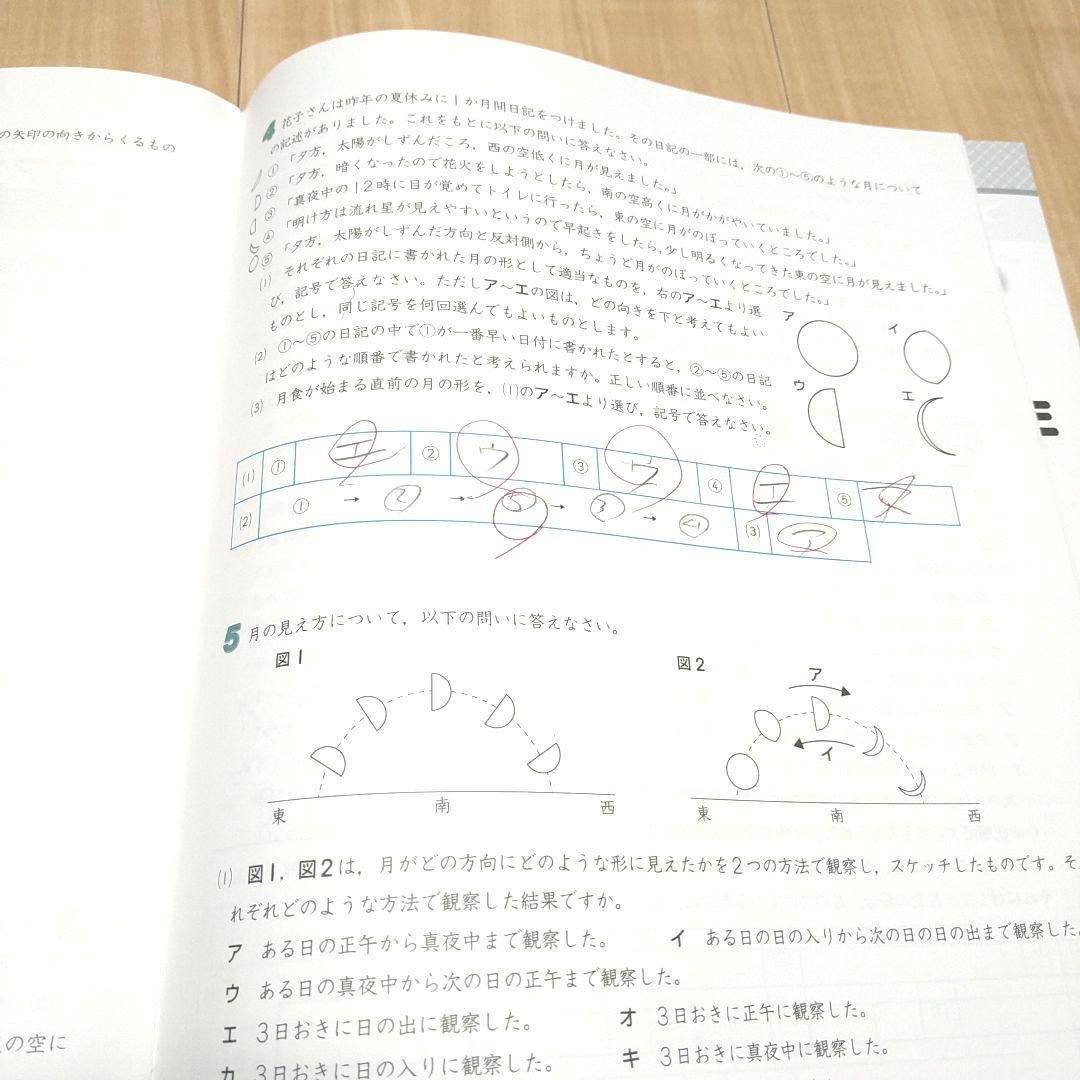 の矢印の向きからくるもの
4 花子さんは昨年の夏休みに1か月間日記をつけました。その日記の一部には，次の①～⑤のような月について
の記述がありました。これをもとに以下の問いに答えなさい。
①「夕方，太陽がしずんだころ，西の空低くに月が見えました。」
②「夕方，暗くなったので花火をしようとしたら，南の空高くに月がかがやいていました。」
③「真夜中の12時に目が覚めてトイレに行ったら，東の空に月がのぼっていくところでした。」
④「明け方は流れ星が見えやすいというので早起きをしたら，少し明るくなってきた東の空に月が見えました。」
⑤「夕方，太陽がしずんだ方向と反対側から，ちょうど月がのぼっていくところでした。」
(1) それぞれの日記に書かれた月の形として適当なものを，右のア～エより選
び，記号で答えなさい。ただしア～エの図は，どの向きを下と考えてもよい
ものとし，同じ記号を何回選んでもよいものとします。
(2) ①～⑤の日記の中で①が一番早い日付に書かれたとすると，②～⑤の日記
はどのような順番で書かれたと考えられますか。正しい順番に並べなさい。
(3) 月食が始まる直前の月の形を，(1)のア～エより選び，記号で答えなさい。
ア イ
ウ エ
(1) ① エ ② ウ ③ ウ ④ エ ⑤
(2) ① → ② → ⑤ → ③ → ④ (3) ア
5 月の見え方について，以下の問いに答えなさい。
図1
図2
ア
イ
東 南 西
東 南 西
(1) 図1，図2は，月がどの方向にどのような形に見えたかを2つの方法で観察し，スケッチしたものです。そ
れぞれどのような方法で観察した結果ですか。
ア ある日の正午から真夜中まで観察した。 イ ある日の日の入りから次の日の日の出まで観察した。
ウ ある日の真夜中から次の日の正午まで観察した。
エ 3日おきに日の出に観察した。 オ 3日おきに正午に観察した。
カ 3日おきに日の入りに観察した。 キ 3日おきに真夜中に観察した。
の空に